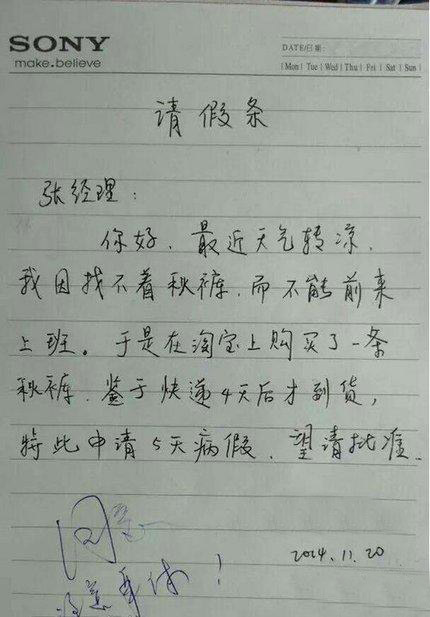 SONY
make.believe
DATE/日期:
| Mon | Tue | Wed | Thu | Fri | Sat | Sun |
请假条
张经理:
你好、最近天气转凉、
我因找不着秋裤、而不能前来
上班。于是在淘宝上购买了一条
秋裤、鉴于快递4天后才到货,
特此申请5天病假、望请批准.
2014.11.20
同意
注意身体!